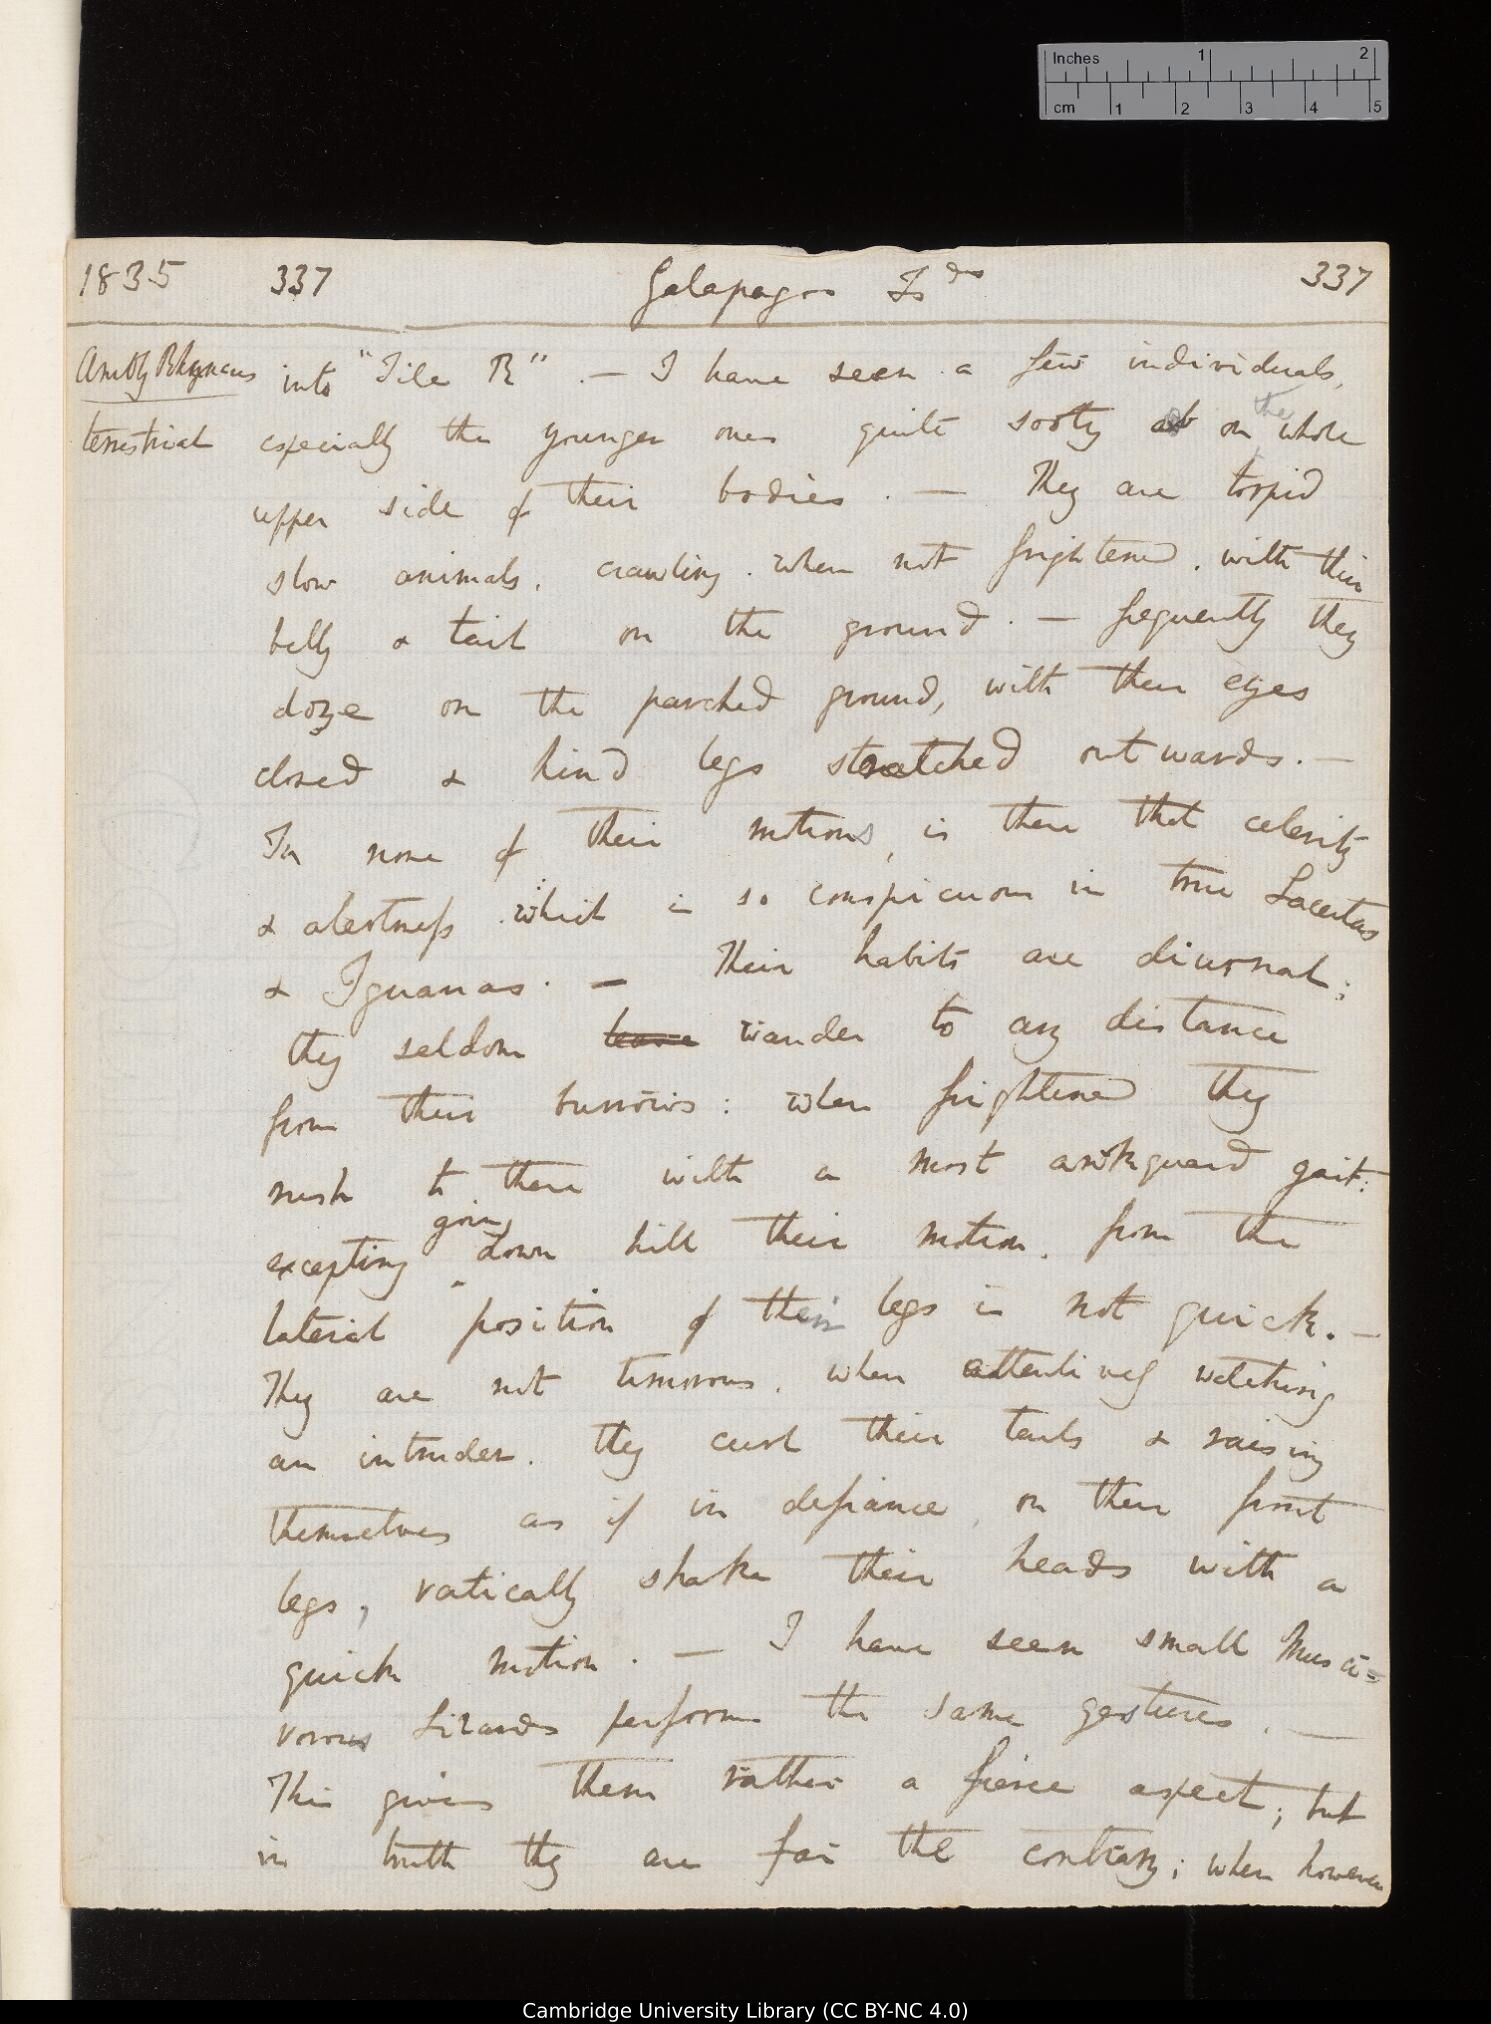 Inches 1 2
cm 1 2 3 4 5
1835 337 Galapagos Is^ds 337
Amblyrhyncus into "Tile R" . — I have seen a few individuals,
terrestrial especially the younger ones quite sooty on the whole
upper side of their bodies. — They are torpid
slow animals, crawling when not frightened, with their
belly & tail on the ground. — frequently they
doze on the parched ground, with their eyes
closed & hind legs stretched outwards. —
In none of their motions, is there that celerity
& alertness which is so conspicuous in true Lacertas
& Iguanas. — Their habits are diurnal;
they seldom leave wander to any distance
from their burrows: when frightened they
rush to them with a most awkguard gait:
going
excepting down hill their motion, from the
lateral position of their legs is not quick. —
They are not timorous, when attentively watching
an intruder, they curl their tails & raising
themselves as if in defiance, on their front
legs, vertically shake their heads with a
quick motion. — I have seen small Musci=
vorous Lizards perform the same gestures. —
This gives them rather a fierce aspect; but
in truth they are far the contrary; when however
Cambridge University Library (CC BY-NC 4.0)